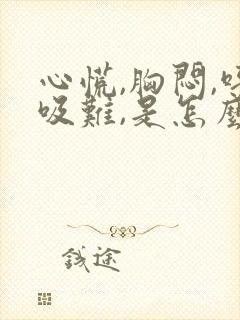 心慌,胸悶,呼
吸難,是怎麼
錢途